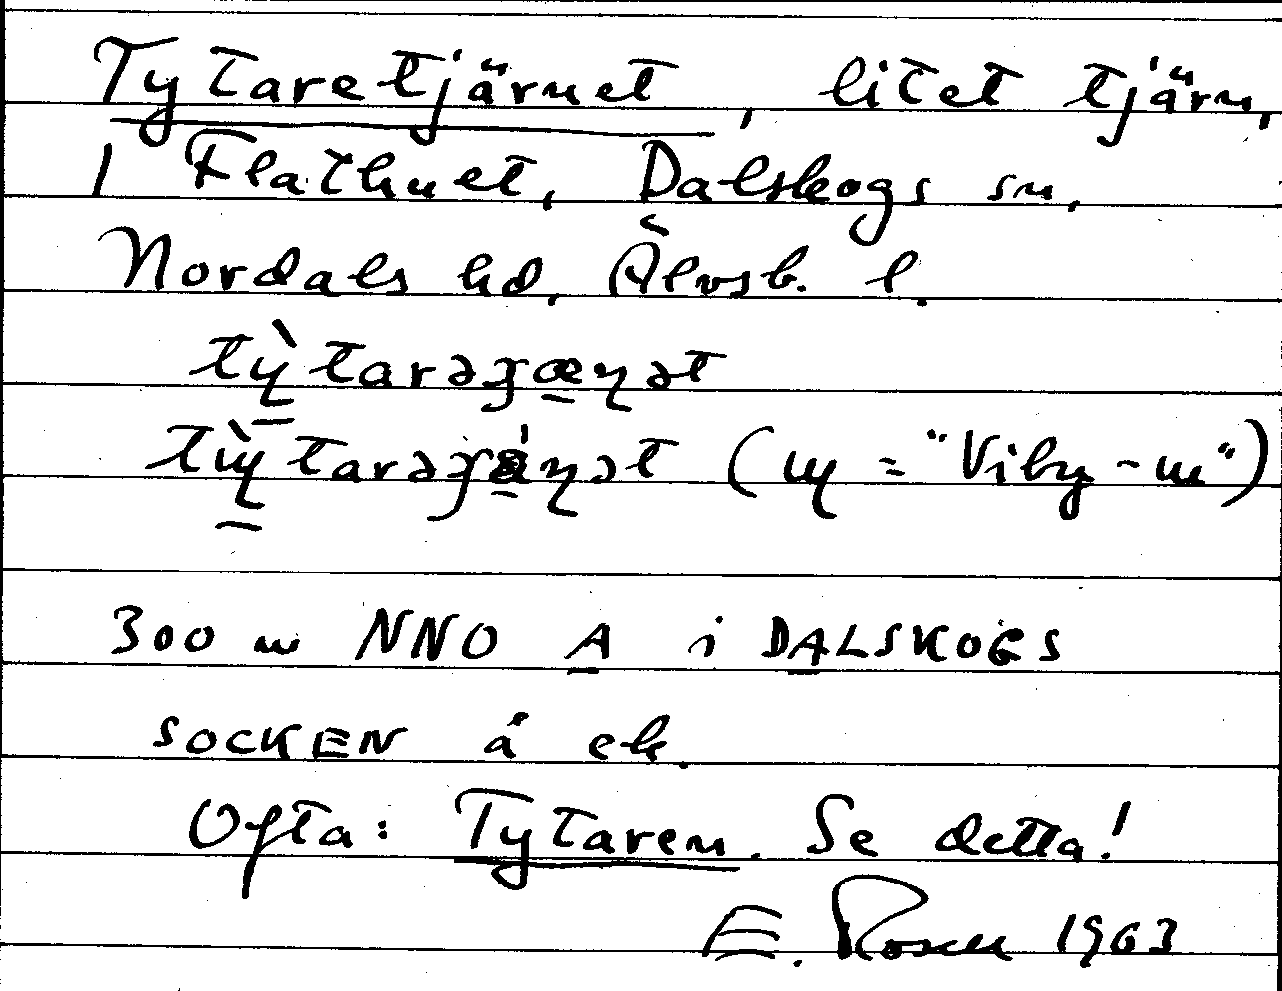 Tytaretjärnet, litet tjärn,
i Flathuet, Dalskogs sn,
Nordals hd, Älvsb. l.
300 m NNO A i DALSKOGS
SOCKEN å ek.
Ofta: Tytaren. Se detta!
E. Rosen 1963